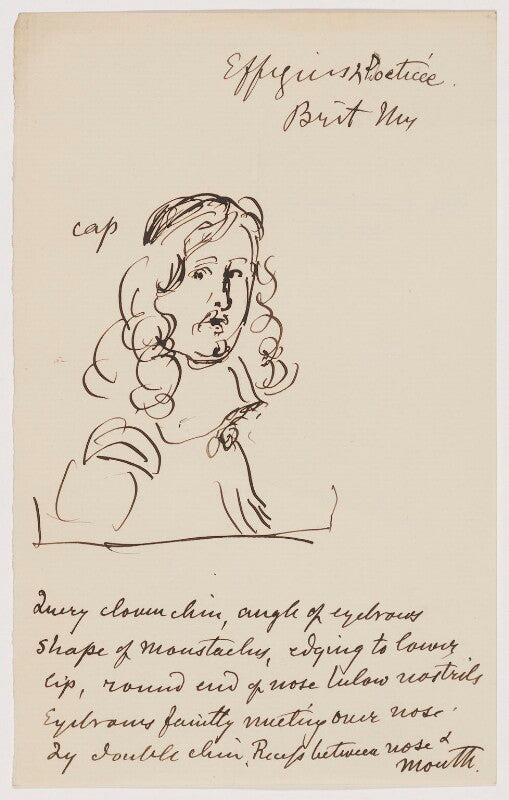 Effigies Poeticae.
Brit Mus
cap
Query cloven chin, angle of eyebrows
shape of moustaches, edging to lower
lip, round end of nose below nostrils
Eyebrows faintly meeting over nose.
Qy double chin, Recess between nose &
mouth.